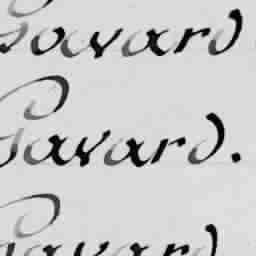 Gavard
Gavard.
Gavard